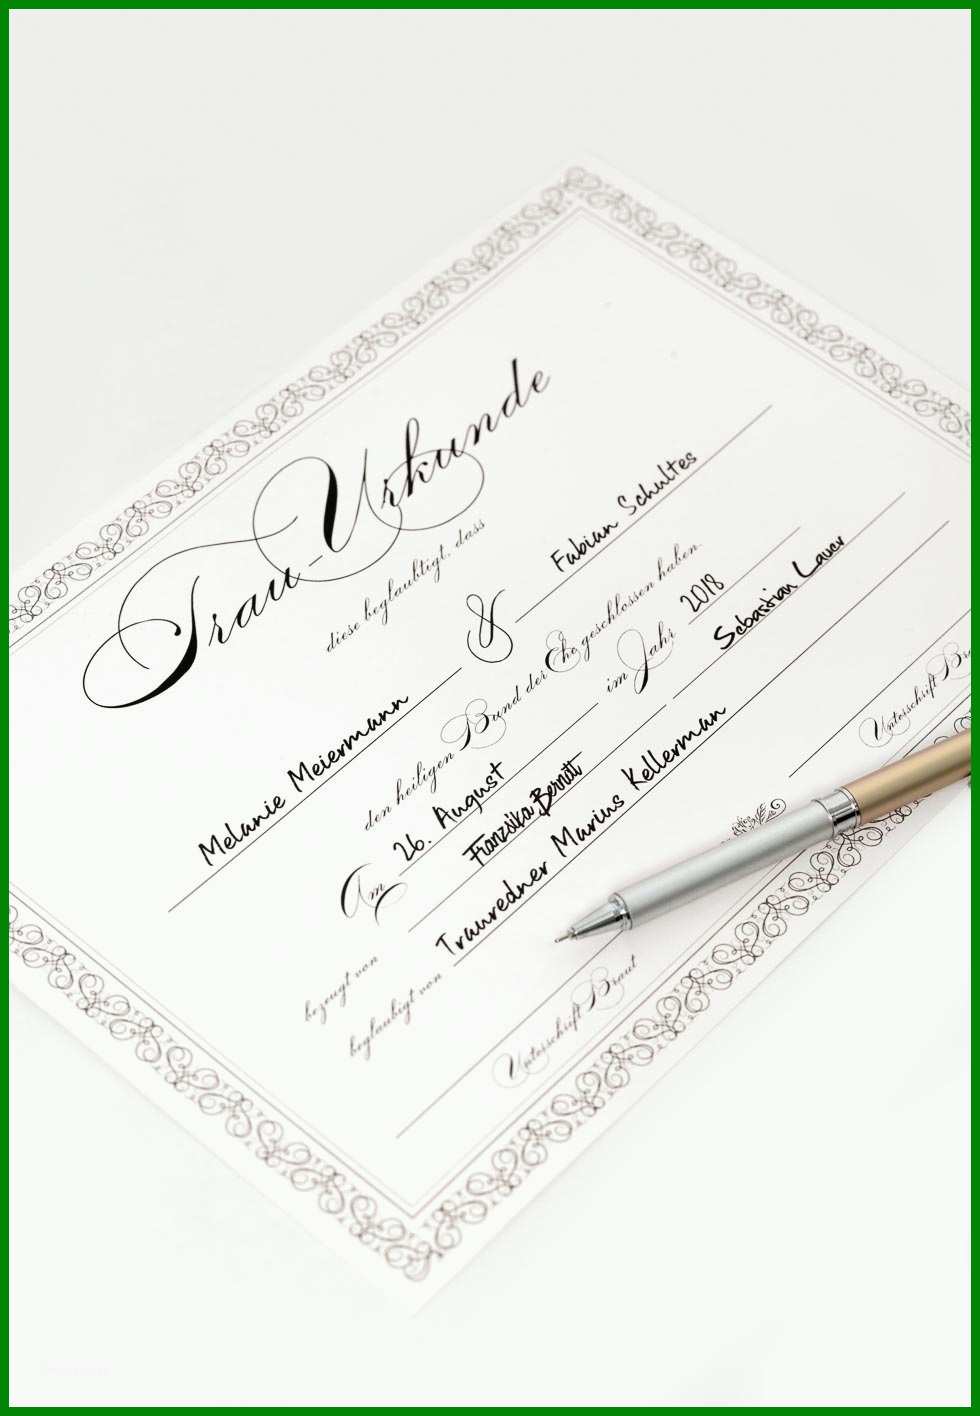 Trau-Urkunde
diese beglaubtigt, dass
Melanie Meiermann & Fabian Schultes
den heiligen Bund der Ehe geschlossen haben.
Am 26. August im Jahr 2018
bezeugt von Franziska Bernitt Sebastian Lauer
beglaubigt von Trauredner Marius Kellerman
Unterschrift Braut Unterschrift